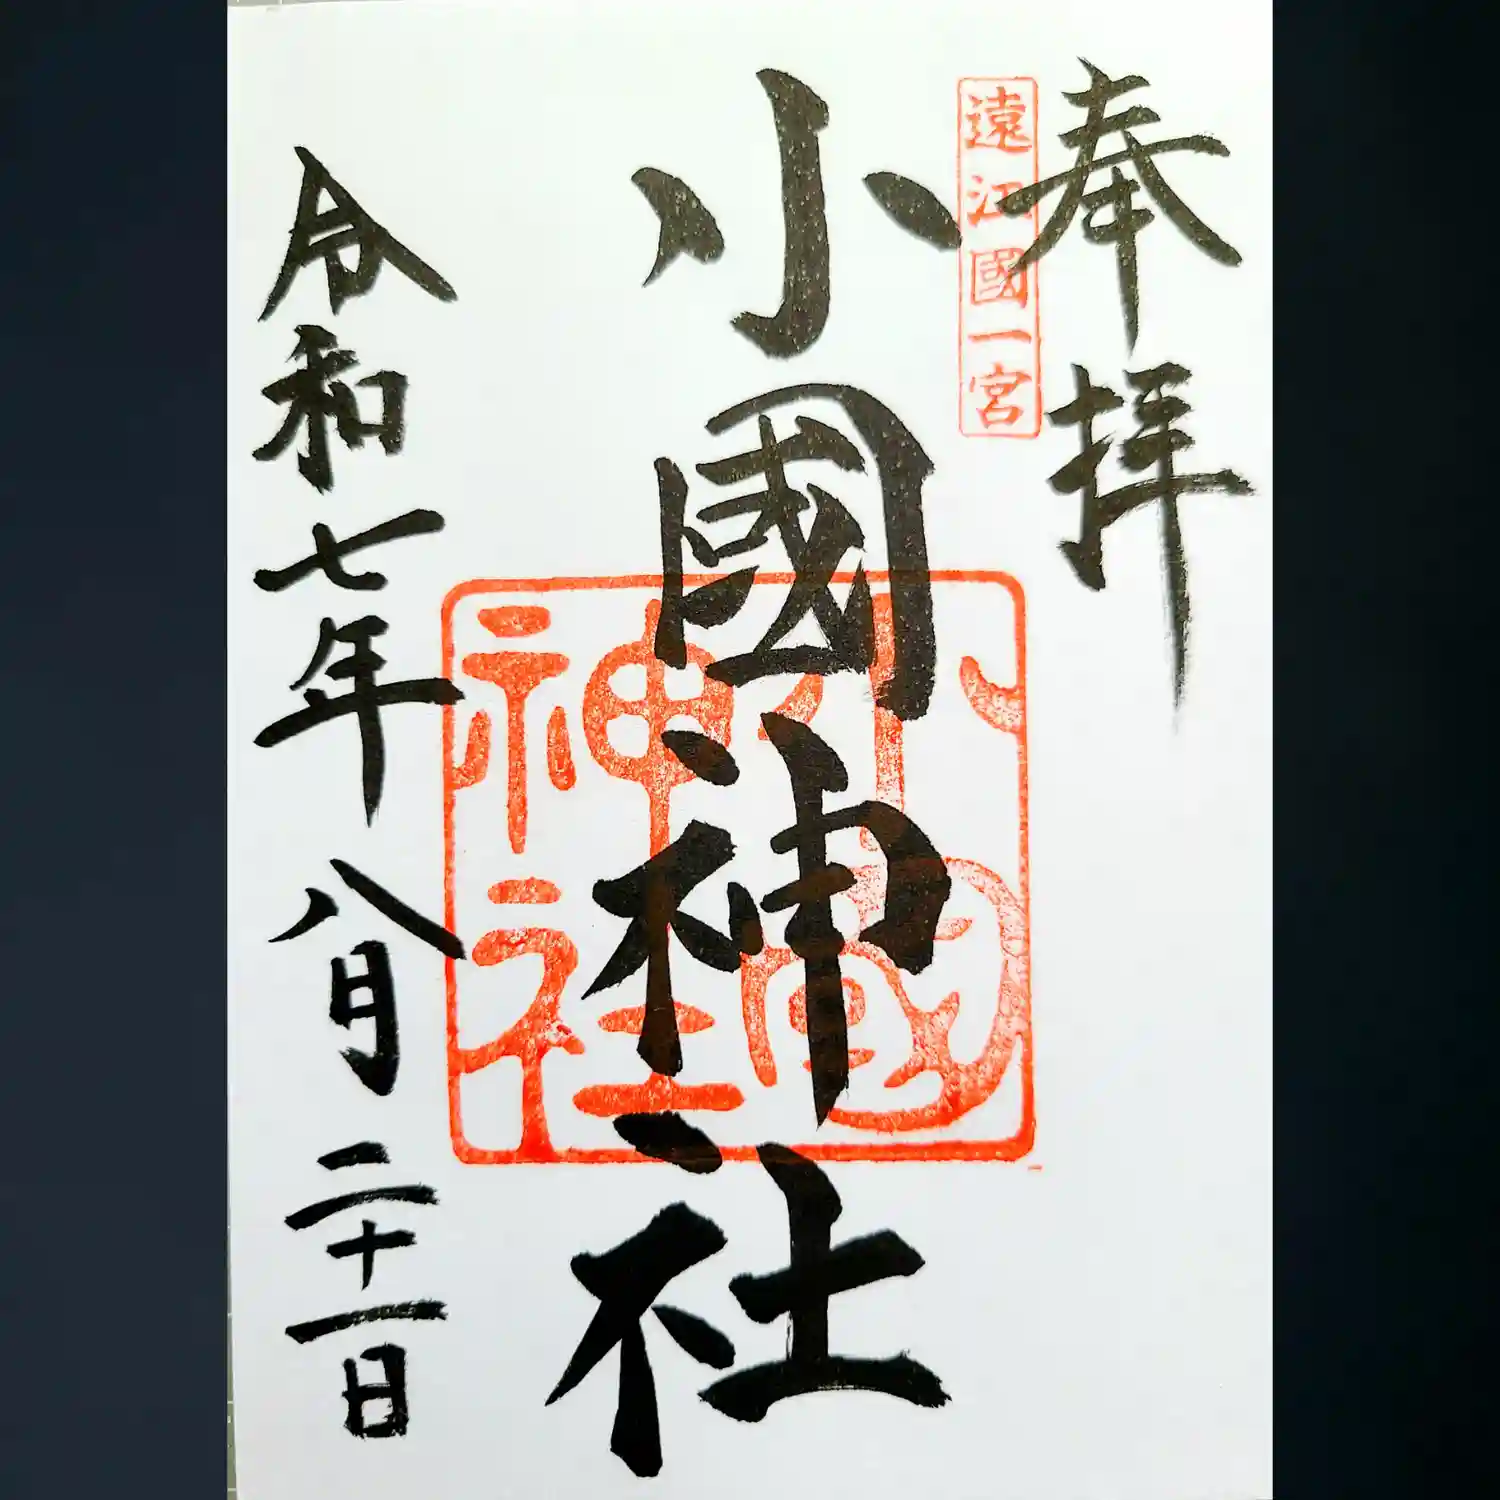 奉拝
遠江國一宮
小國神社
小國
神社
令和七年八月二十一日